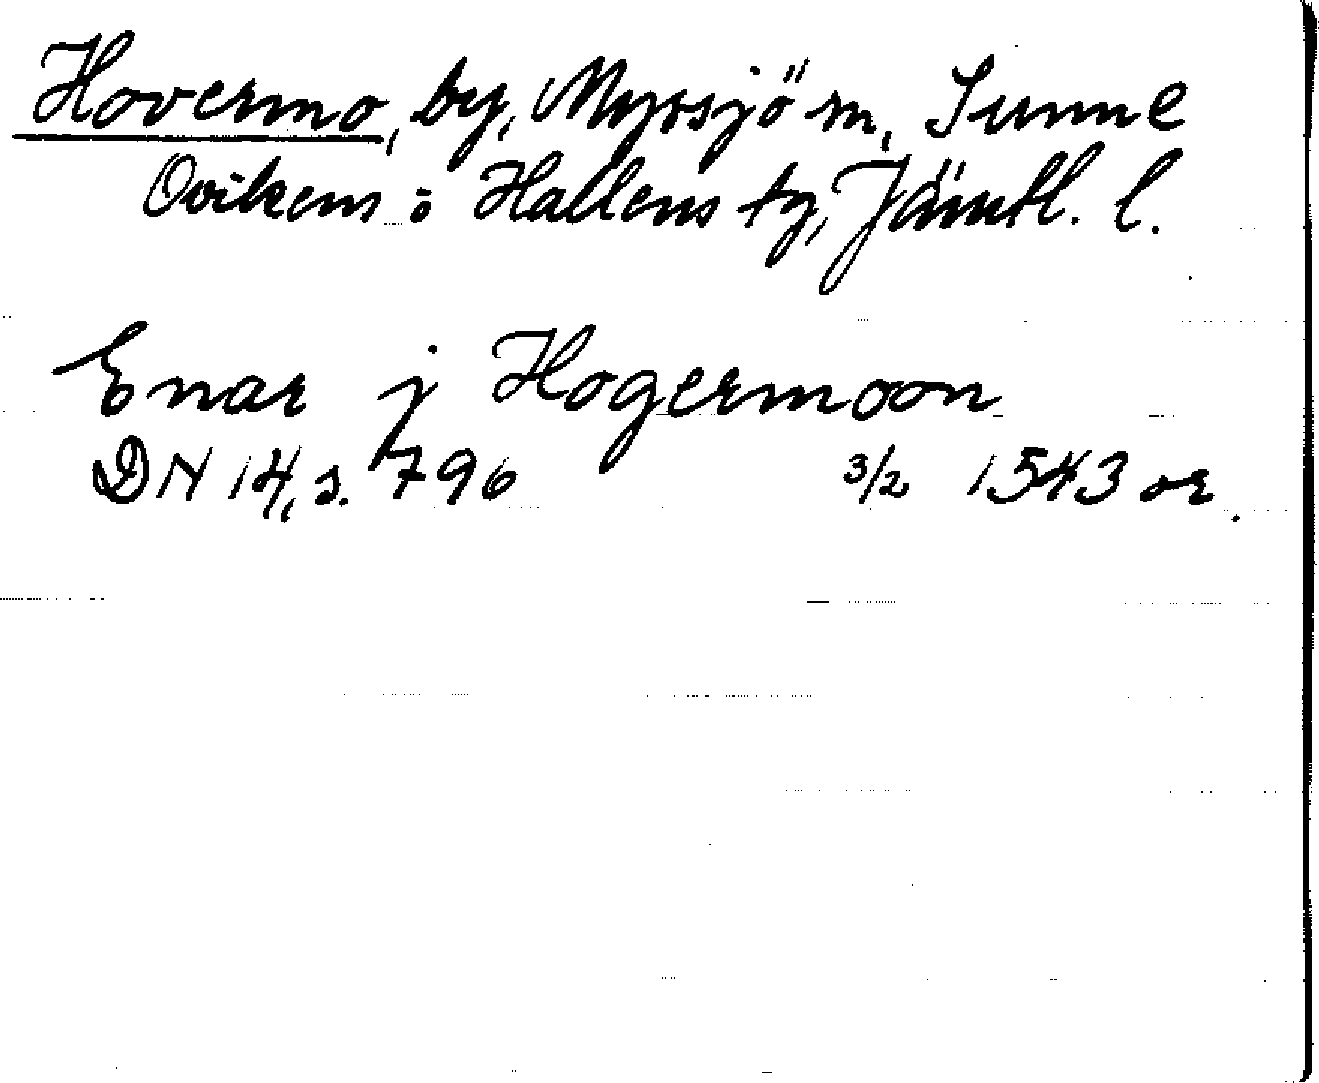 Hovermo, by, Myssjö sn, Sunne
Ovikens o Hallens tg, Jämtl. l.
Enar j Hogermoon
DN 14, s. 796 3/2 1543 or.